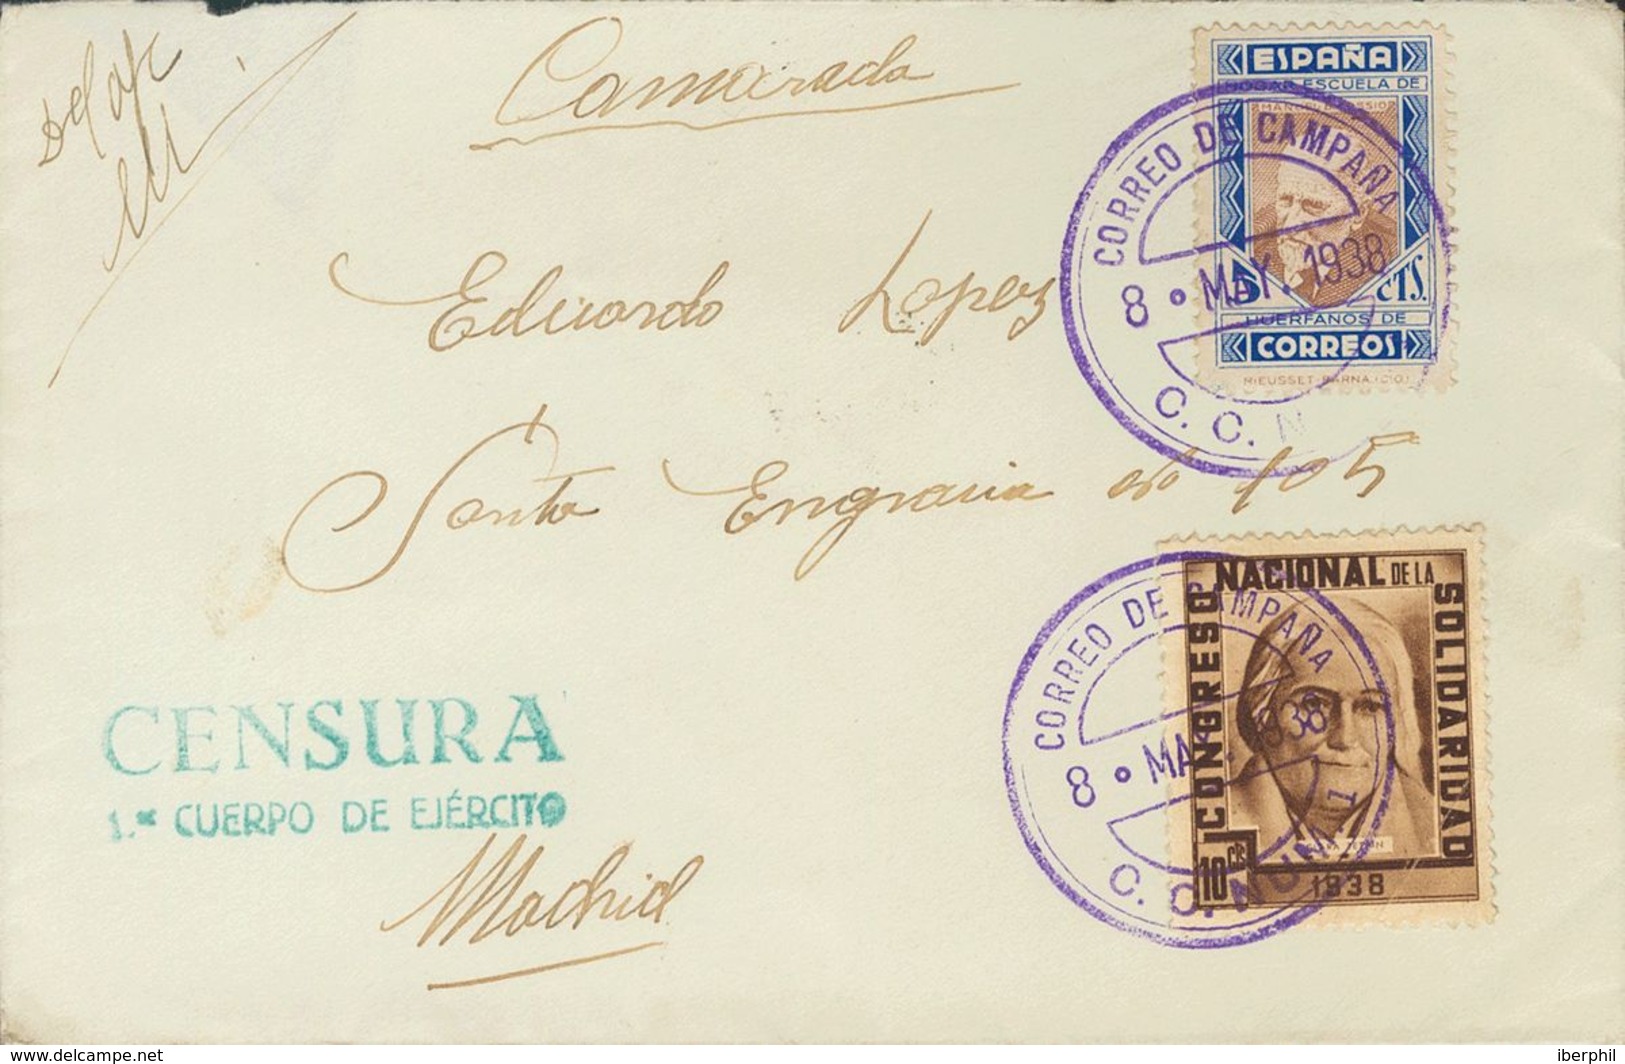 Camarada
Eduardo Lopez
Santa Engracia nº 105
Madrid
CENSURA
1.er CUERPO DE EJÉRCITO
ESPAÑA
HOGAR ESCUELA DE
5 CTS.
HUERFANOS DE
CORREOS
RIEUSSET-BARNA
CORREO DE CAMPAÑA
8 • MAY. 1938
C. C. N
CONGRESO NACIONAL DE LA SOLIDARIDAD
10 cts
1938
CORREO DE CAMPAÑA
8 • MAY. 1938
C. C. NUM. 1
www.delcampe.net
iberphil